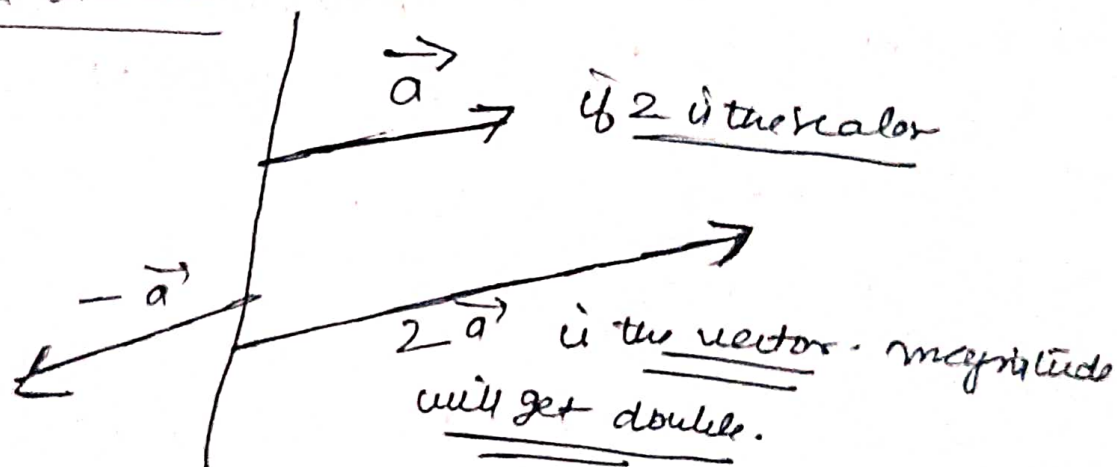 a⃗
if 2 is the scalar
− a⃗
2 a⃗ is the vector. magnitude
will get double.